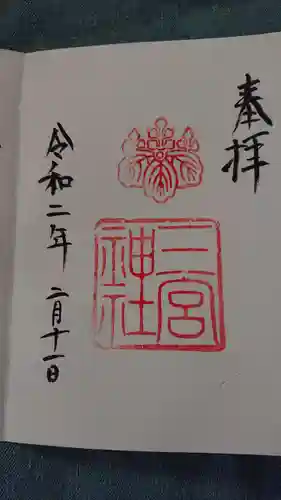 奉拝
二宮
神社
令和二年 二月十一日